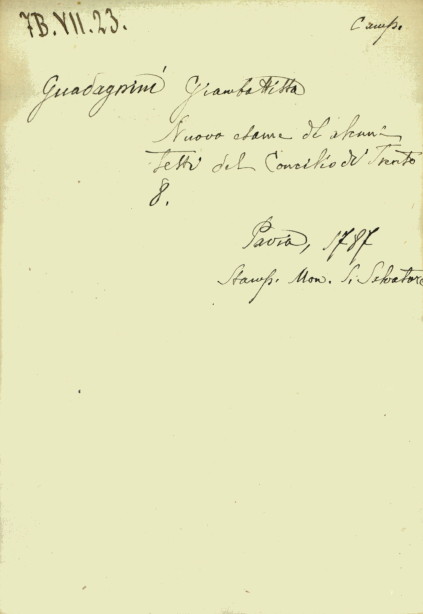 7B.VII.23.
Camp.
Guadagnini Giambattista
Nuovo esame di alcuni
testi del Concilio di Trento
8.
Pavia, 1787
Stamp. Mon. S. Salvatore